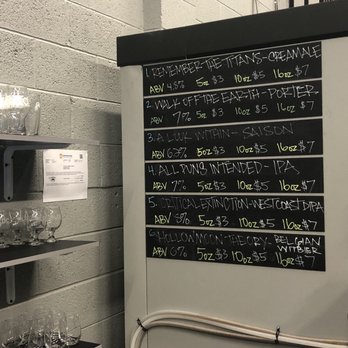 1. REMEMBER THE TITANS - CREAM ALE
ABV 4.8% 5oz $3 10oz $5 16oz $7
2. WALK OFF THE EARTH - PORTER
ABV 7% 5oz $3 10oz $5 16oz $7
3. A LOOK WITHIN - SAISON
ABV 5oz $3 10oz $5 16oz $7
4. ALL PUNS INTENDED - IPA
ABV 7% 5oz $3 10oz $5 16oz $7
5. CRITICAL EXTINCTION - WEST COAST DIPA
ABV 8% 5oz $3 10oz $5 16oz $7
6. HOLLOW MOON THEORY - BELGIAN WITBIER
ABV 5oz $3 10oz $5 16oz $7